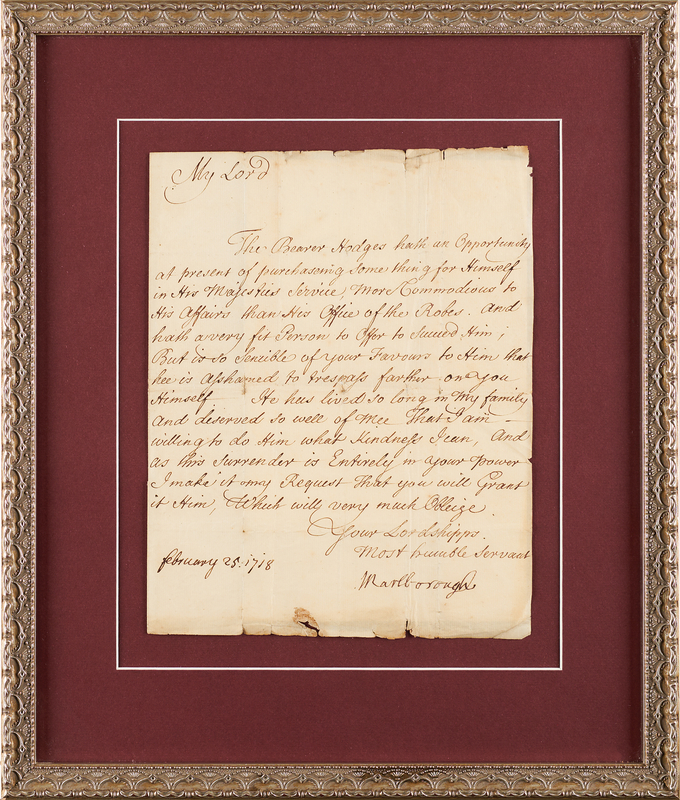 My Lord
The Bearer Hodges hath an Opportunity
at present of purchaseing some thing for Himself
in His Majesties Service, More Commodious to
His Affairs than His Office of the Robes. And
hath a very fit Person to Offer to Succeed Him;
But is so Sencible of your Favours to Him that
hee is asshamed to trespass farther on you
Himself He has lived so long in my family
And deserved so well of Mee That I am -
willing to do Him what Kindness I can, And
as this Surrender is Entirely in your Power
I make it my Request That you will Grant
it Him, Which will very much Obleige
Your Lordshipps.
Most humble Servant
february 25. 1718
Marlborough